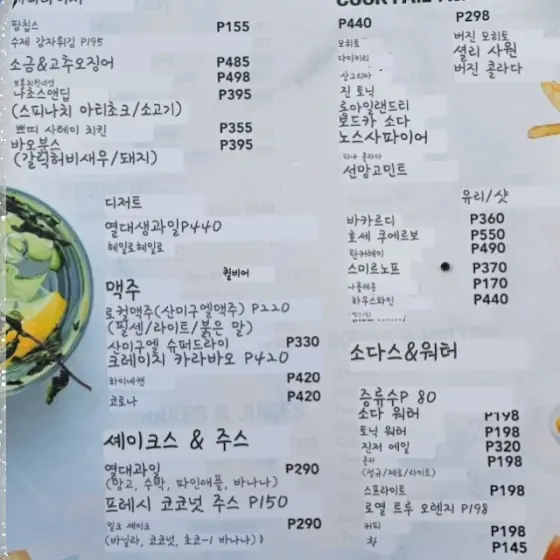 팜칩스 P155
수제 감자튀김 P195
소금&고추오징어 P485
P498
나초스앤딥 P395
(스피나치 아티초크/소고기)
쁘띠 사테이 치킨 P355
바오분스 P395
(갈릭허비새우/돼지)
디저트
열대생과일P440
헤일로헤일로
필비어
맥주
로컬맥주(산미구엘맥주) P220
(필센/라이트/붉은 말)
산미구엘 슈퍼드라이 P330
크레이지 카라바오 P420
하이네켄 P420
코로나 P420
셰이크스 & 주스
열대과일 P290
(망고, 수박, 파인애플, 바나나)
프레시 코코넛 주스 P150
밀크 셰이크 P290
(바닐라, 코코넛, 초코-1 바나나)
P440 P298
모히토
다이키리
상그리아
진 토닉
로아일랜드티
보드카 소다
노스사파이어
피나 콜라다
선앙고민트
버진 모히토
셜리 사원
버진 콜라다
유리/샷
바카르디 P360
호세 쿠에르보 P550
탄커레이 P490
스미르노프 P370
나폴레옹 P170
하우스와인 P440
소다스&워허
증류수P 80
소다 워허 P198
토닉 워허 P198
진저 에일 P320
콜라 P198
(정규/제로/라이트)
스프라이트 P198
로열 트루 오렌지 P198
커피 P198
차 P145